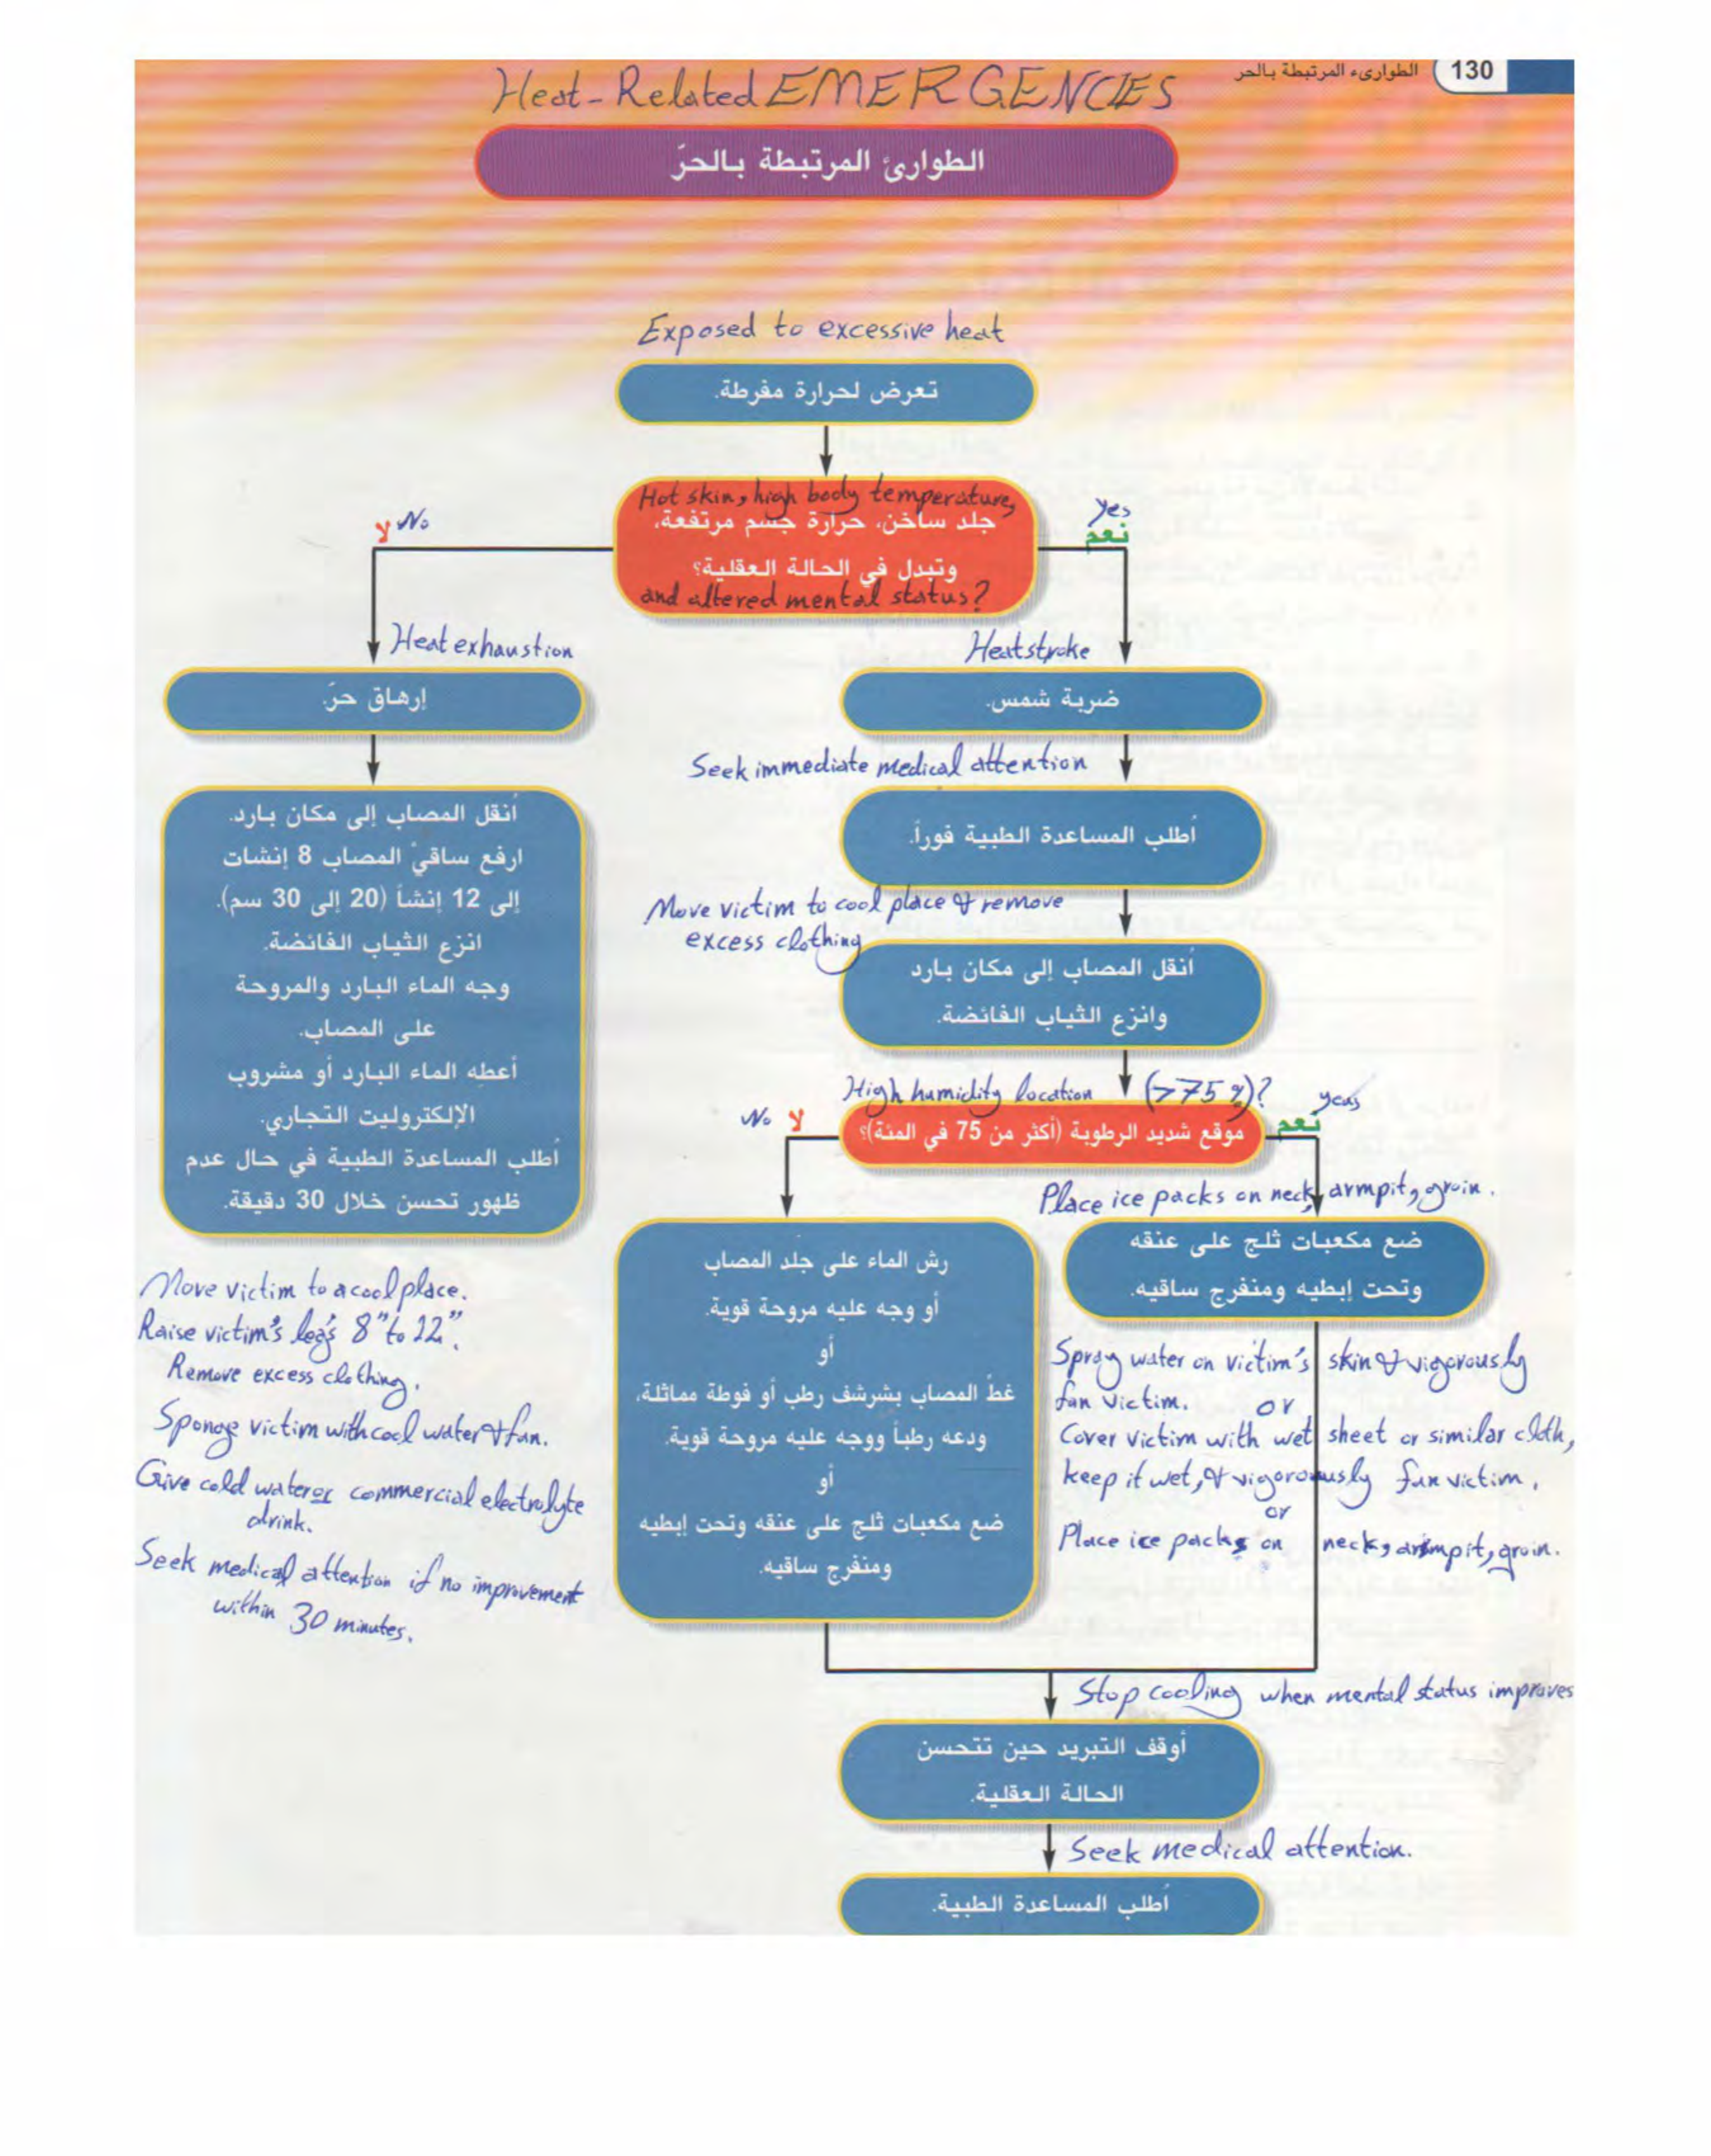 130 الطوارىء المرتبطة بالحر
Heat-Related EMERGENCIES
الطوارئ المرتبطة بالحرّ
Exposed to excessive heat
تعرض لحرارة مفرطة.
Hot skin, high body temperature,
جلد ساخن، حرارة جسم مرتفعة،
وتبدل في الحالة العقلية؟
and altered mental status?
لا No
Yes
نعم
Heat exhaustion
إرهاق حرّ.
أنقل المصاب إلى مكان بارد.
ارفع ساقيْ المصاب 8 إنشات
إلى 12 إنشاً (20 إلى 30 سم).
انزع الثياب الفائضة.
وجه الماء البارد والمروحة
على المصاب.
أعطه الماء البارد أو مشروب
الإلكتروليت التجاري.
أطلب المساعدة الطبية في حال عدم
ظهور تحسن خلال 30 دقيقة.
Move victim to a cool place.
Raise victim's legs 8" to 12".
Remove excess clothing.
Sponge victim with cool water & fan.
Give cold water or commercial electrolyte
drink.
Seek medical attention if no improvement
within 30 minutes.
Heatstroke
ضربة شمس.
Seek immediate medical attention
أطلب المساعدة الطبية فوراً.
Move victim to cool place & remove
excess clothing
أنقل المصاب إلى مكان بارد
وانزع الثياب الفائضة.
High humidity location (>75%)?
موقع شديد الرطوبة (أكثر من 75 في المئة)؟
No لا
نعم
رش الماء على جلد المصاب
أو وجه عليه مروحة قوية.
أو
غطّ المصاب بشرشف رطب أو فوطة مماثلة،
ودعه رطباً ووجه عليه مروحة قوية.
أو
ضع مكعبات ثلج على عنقه وتحت إبطيه
ومنفرج ساقيه.
Place ice packs on neck, armpit, groin.
ضع مكعبات ثلج على عنقه
وتحت إبطيه ومنفرج ساقيه.
Spray water on victim's skin & vigorously
fan victim. or
Cover victim with wet sheet or similar cloth,
keep it wet, & vigorously fan victim.
or
Place ice packs on neck, armpit, groin.
Stop cooling when mental status improves
أوقف التبريد حين تتحسن
الحالة العقلية.
Seek medical attention.
أطلب المساعدة الطبية.